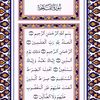 سُورَةُ الفَاتِحَةِ
بِسْمِ اللَّهِ الرَّحْمَٰنِ الرَّحِيمِ
الْحَمْدُ لِلَّهِ رَبِّ الْعَالَمِينَ
الرَّحْمَٰنِ الرَّحِيمِ مَالِكِ يَوْمِ الدِّينِ
إِيَّاكَ نَعْبُدُ وَإِيَّاكَ نَسْتَعِينُ
اهْدِنَا الصِّرَاطَ الْمُسْتَقِيمَ
صِرَاطَ الَّذِينَ أَنْعَمْتَ
عَلَيْهِمْ غَيْرِ الْمَغْضُوبِ
عَلَيْهِمْ وَلَا الضَّالِّينَ